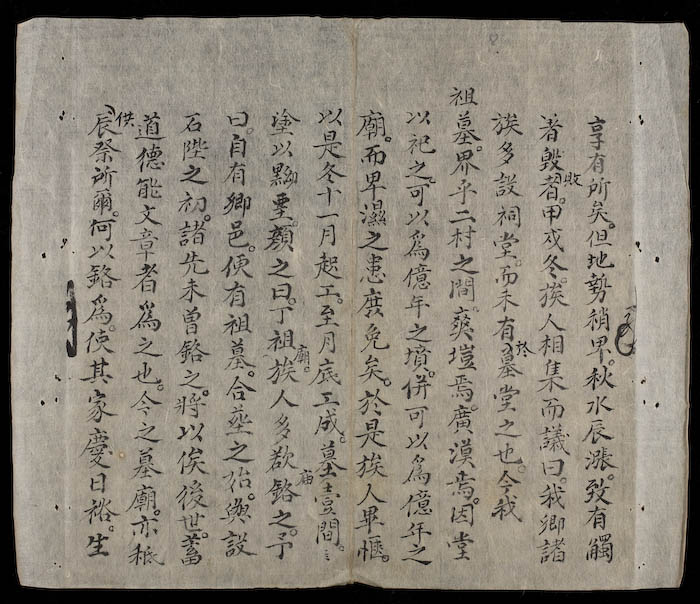 享有所矣。但地勢稍卑。秋水辰漲。致有觸
着毀敗者。甲戌冬。族人相集而議曰。我鄉諸
族多設祠堂。而未有於墓堂之也。今我
祖墓。界乎二村之間。爽塏焉。廣漠焉。因堂
以祀之。可以爲億年之墳。併可以爲億年之
廟。而卑濕之患庶免矣。於是族人畢愜。
以是冬十一月起工。至月底工成。墓庙壹間。
塗以黝堊。顏之曰。丁祖廟。族人多欲銘之。予
曰。自有鄉邑。便有祖墓。合塟之始。與設
石陛之初。諸先未曾銘之。將以俟後世。蓄
道德能文章者爲之也。今之墓廟。亦秪
供辰祭所爾。何以銘爲。使其家慶日裕。生